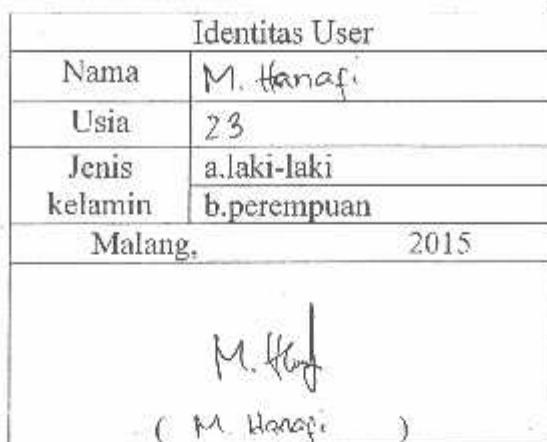 Identitas User
Nama M. Hanafi
Usia 23
Jenis kelamin a.laki-laki
b.perempuan
Malang, 2015
M. Hanf
( M. Hanafi )